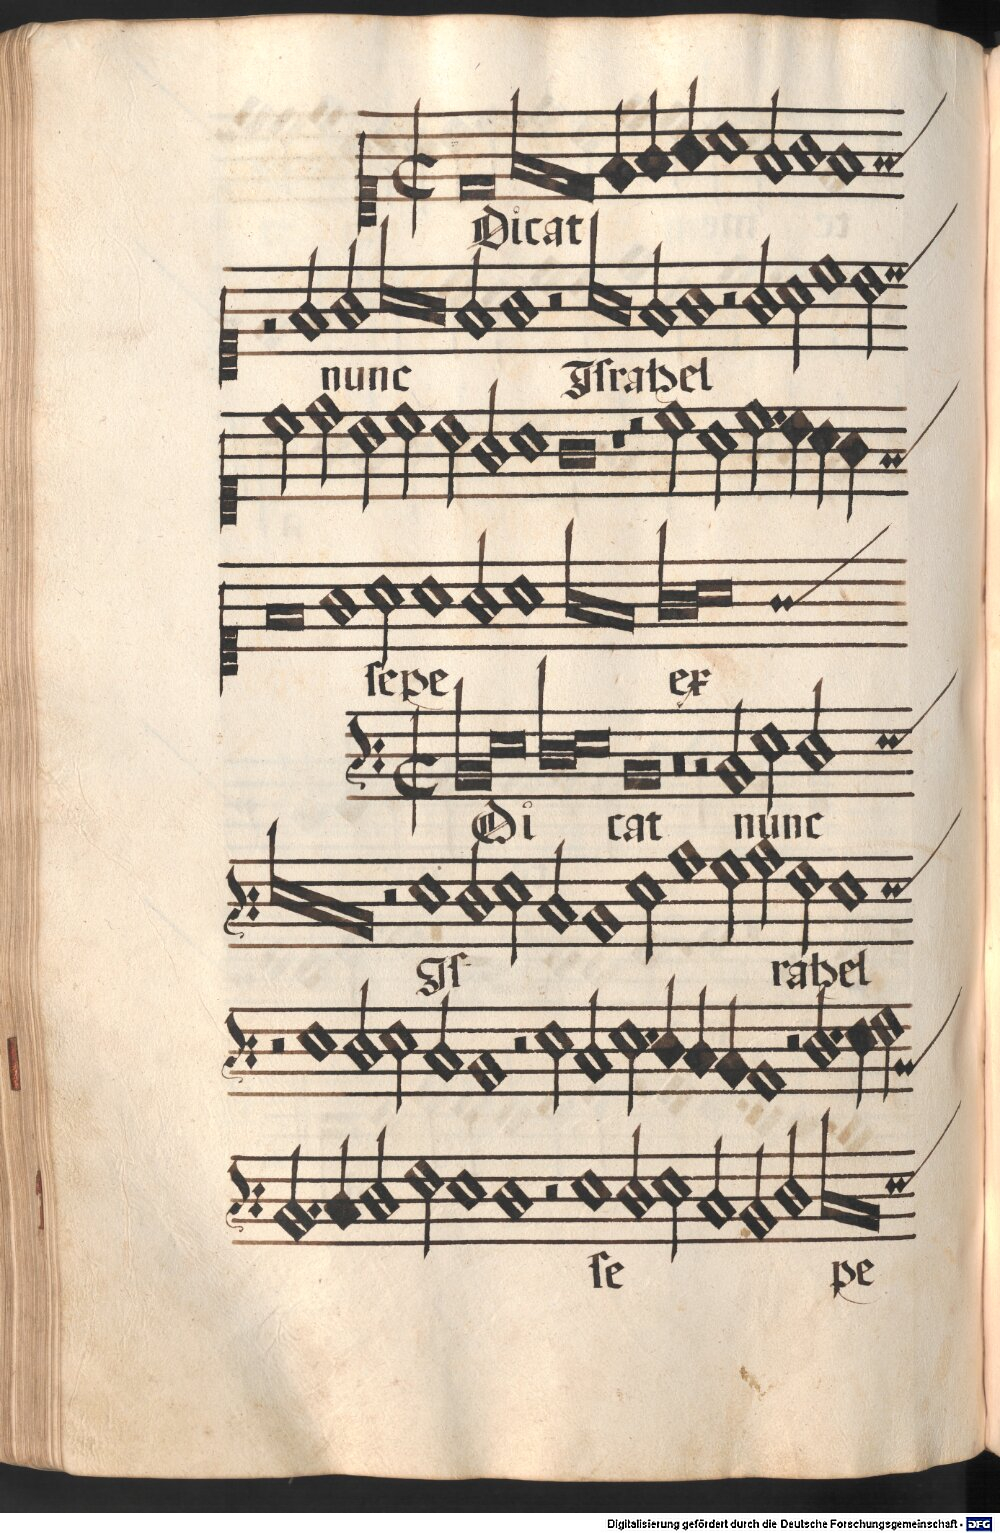 Dicat
nunc Israhel
sepe ex
Di cat nunc
Is rahel
se pe
Digitalisierung gefördert durch die Deutsche Forschungsgemeinschaft - DFG